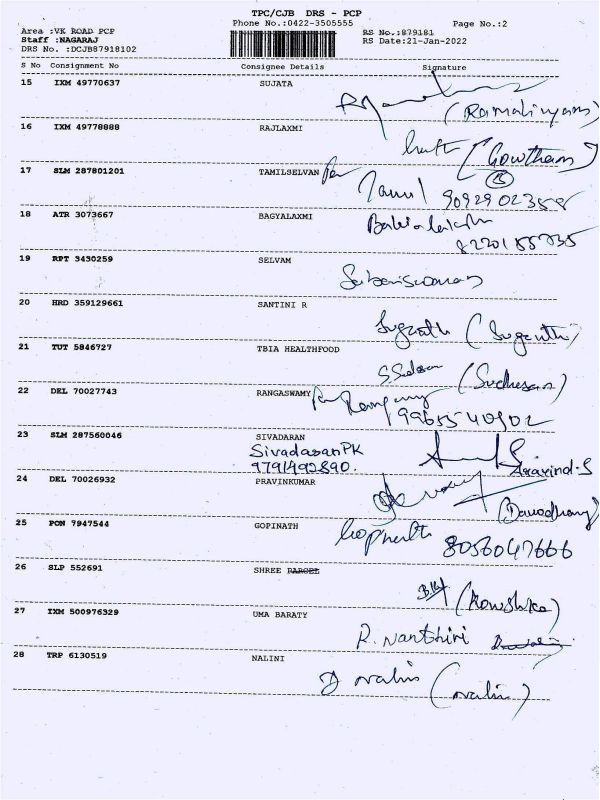 TPC/CJB DRS - PCP
Phone No.:0422-3505555 Page No.:2
Area :VK ROAD PCP RS No.:879181
Staff :NAGARAJ RS Date:21-Jan-2022
DRS No. :DCJB87918102
S No Consignment No Consignee Details Signature
15 IXM 49770637 SUJATA
(Ramalingam)
16 IXM 49778888 RAJLAXMI
(Gowtham)
17 SLM 287801201 TAMILSELVAN
Tamil 9092902358
18 ATR 3073667 BAGYALAXMI
8220155735
19 RPT 3430259 SELVAM
20 HRD 359129661 SANTINI R
(Suganthi)
21 TUT 5846727 TBIA HEALTHFOOD
(Sudhesan)
22 DEL 70027743 RANGASWAMY
9965540902
23 SLM 287560046 SIVADARAN
SivadasanPK
9791492890. Aravind-S
24 DEL 70026932 PRAVINKUMAR
25 PON 7947544 GOPINATH
8056047666
26 SLP 552691 SHREE PARCEL
(Kowshika)
27 IXM 500976329 UMA BARATY
R. Nanthini
28 TRP 6130519 NALINI
D nalini (nalini)